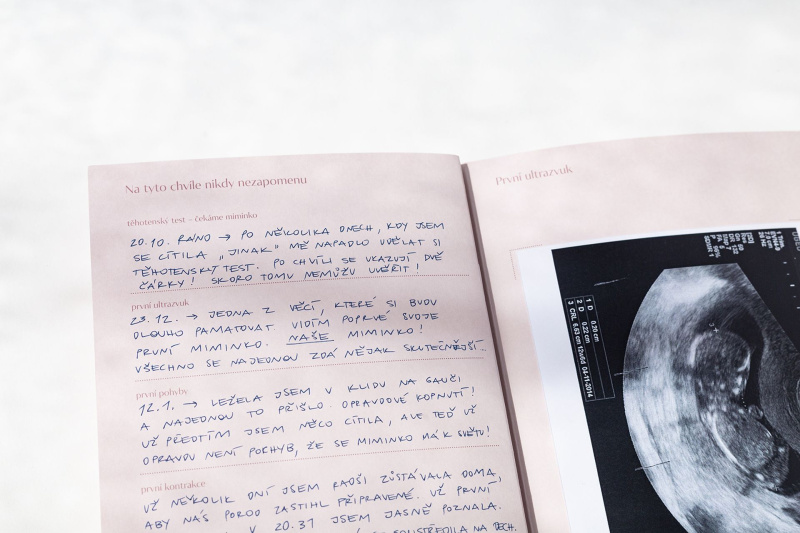 Na tyto chvíle nikdy nezapomenu
těhotenský test – čekáme miminko
20.10. RÁNO → PO NĚKOLIKA DNECH, KDY JSEM
SE CÍTILA „JINAK" MĚ NAPADLO UDĚLAT SI
TĚHOTENSKÝ TEST. PO CHVÍLI SE UKAZUJÍ DVĚ
ČÁRKY! SKORO TOMU NEMŮŽU UVĚŘIT!
první ultrazvuk
23.12. → JEDNA Z VĚCÍ, KTERÉ SI BUDU
DLOUHO PAMATOVAT VIDÍM POPRVÉ SVOJE
PRVNÍ MIMINKO. NAŠE MIMINKO!
VŠECHNO SE NAJEDNOU ZDÁ NĚJAK SKUTEČNĚJŠÍ..
první pohyby
12.1. → LEŽELA JSEM V KLIDU NA GAUČI
A NAJEDNOU TO PŘIŠLO. OPRAVDOVÉ KOPNUTÍ!
UŽ PŘEDTÍM JSEM NĚCO CÍTILA, ALE TEĎ UŽ
OPRAVDU NENÍ POHYB, ŽE SE MIMINKO MÁ K SVĚTU!
první kontrakce
UŽ NĚKOLIK DNÍ JSEM RADŠI ZŮSTÁVALA DOMA,
ABY NÁS POROD ZASTIHL PŘIPRAVENÉ. UŽ PRVNÍ
V 20.31 JSEM JASNĚ POZNALA.
NA DECH.
První ultrazvuk
1 D 0.20 cm
2 D 0.22 cm
3 CRL 6.63 cm 12w6d 04-11-2014